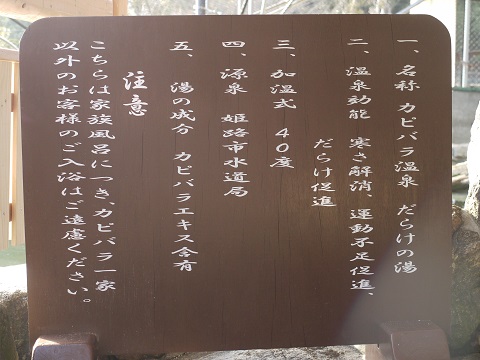 一、名称 カピバラ温泉 だらけの湯
二、温泉効能 寒さ解消、運動不足促進、
だらけ促進
三、加温式 40度
四、源泉 姫路市水道局
五、湯の成分 カピバラエキス含有
注意
こちらは家族風呂につき、カピバラ一家
以外のお客様のご入浴はご遠慮ください。